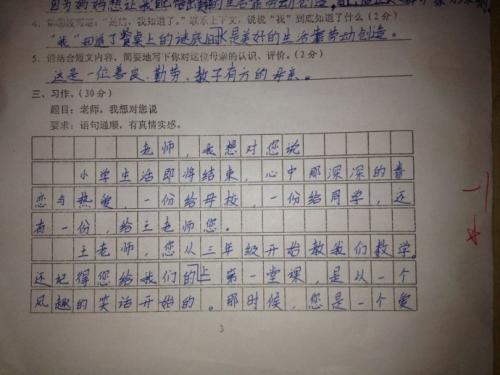 因为妈妈想让我
4. 知道了"。联系上下文,说说"我"到底知道了什么(2分)
"我"知道了餐桌上的谜底 是美好的生活靠劳动创造。
5. 请结合短文内容,简要地写下你对这位母亲的认识、评价。(2分)
这是一位善良、勤劳、教子有方的母亲。
三、习作。(30分)
题目:老师,我想对您说
要求:语句通顺,有真情实感。
老师,我想对您说
小学生活即将结束,心中那深深的眷
恋与热爱,一份给母校,一份给同学,还
有一份,给王老师您。
王老师,您从三年级开始教我们数学。
还记得您给我们的上第一堂课,是以一个
风趣的笑话开始的。那时候,您是一个爱
3